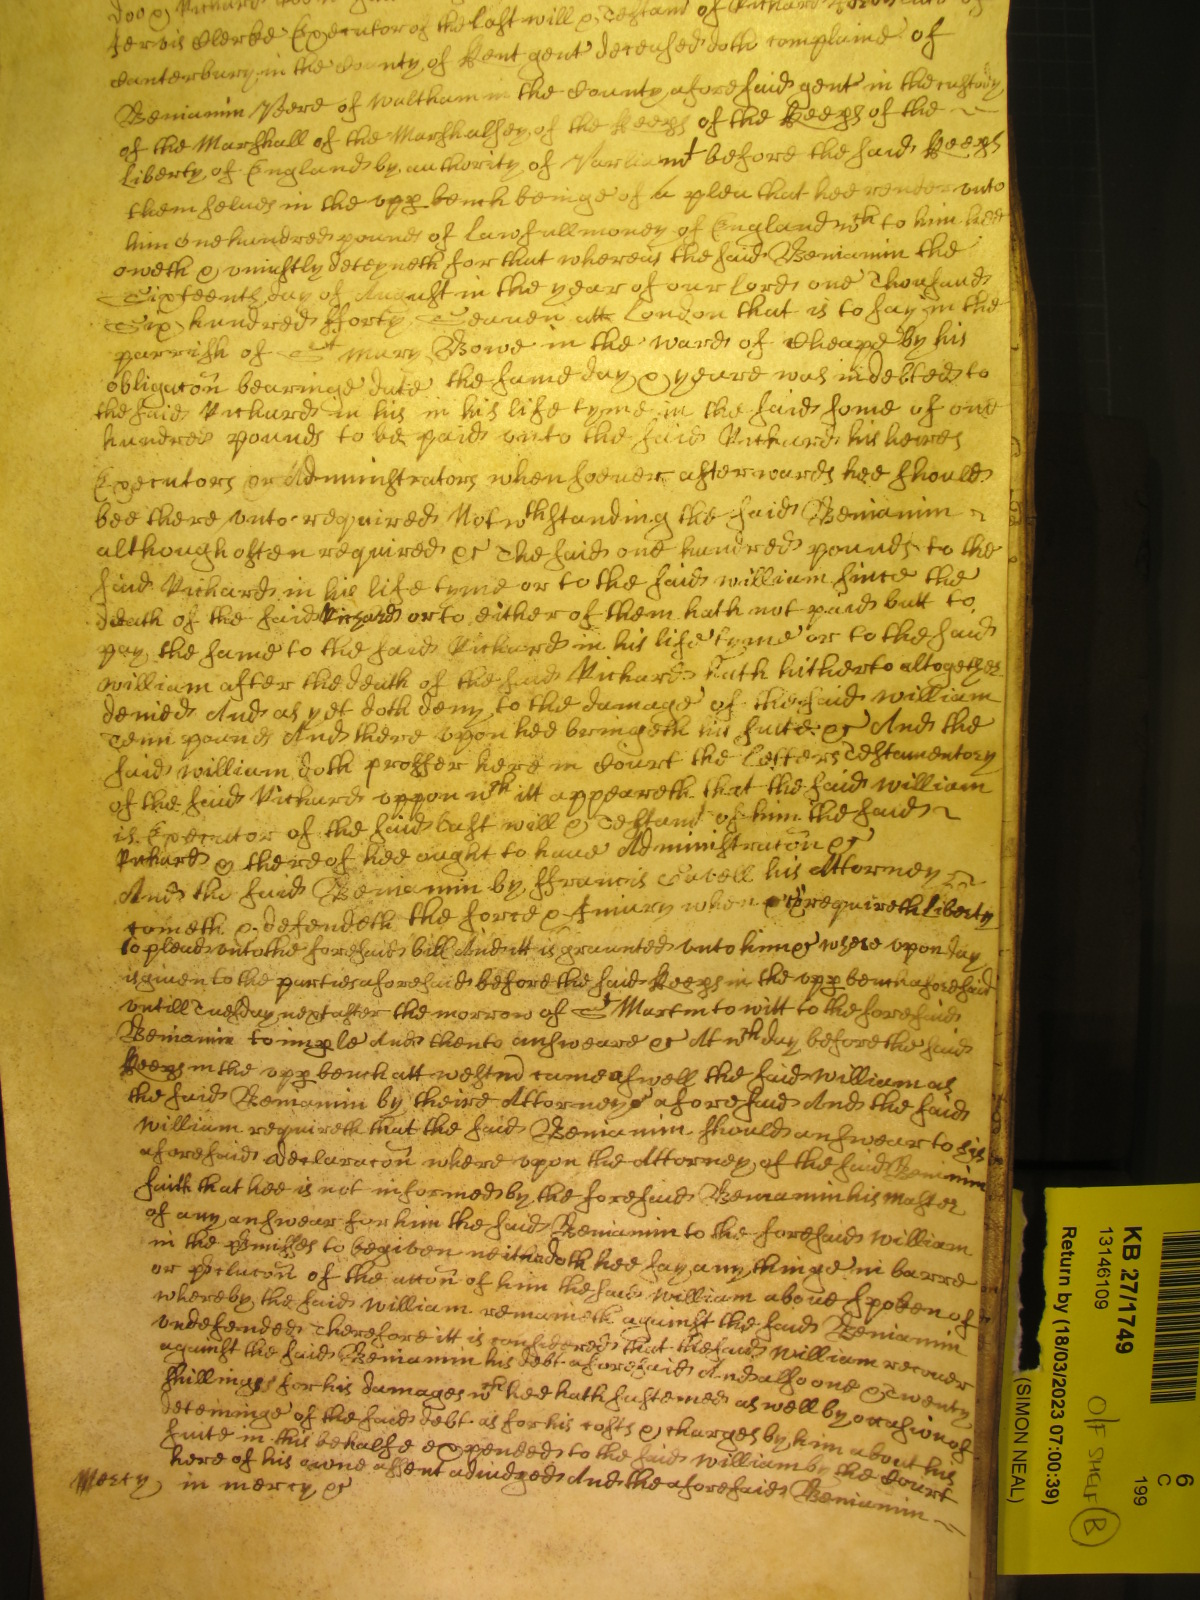 Jervis Clerke Executor of the last will & Testamt of Richard
Canterbury in the County of Kent gent deceased doth complaine of
Beniamin Beere of Waltham in the County aforesaid gent in the custody
of the Marshall of the Marshalsey of the Keeps of the Keeps of the
Liberty of England by authority of Parliamt before the said Keeps
themselues in the upp bench beinge of a plea that hee render unto
him one hundred pounds of lawfull money of England wch to him hee
oweth & uniustly deteyneth for that whereas the said Beniamin the
Sixteenth day of August in the year of our lord one Thousand
Six hundred fforty Seaven att London that is to say in the
parrish of St Mary Bowe in the ward of Cheape by his
obligacon bearinge date the same day & yeare was indebted to
the said Richard in his in his life tyme in the said some of one
hundred pounds to be paid unto the said Richard his heires
Executors or Administrators whensoeuer afterwards hee should
bee there unto required Notwthstanding the said Beniamin
although often required &c The said one hundred pounds to the
said Richard in his life tyme or to the said william since the
death of the said Richard or to either of them hath not paid butt to
pay the same to the said Richard in his life tyme or to the said
william after the death of the said Richard hath hitherto altogether
denied And as yet doth deny to the damage of the said william
Tenn pounds And there upon hee bringeth his suite &c And the
said william doth proffer here in Court the Letters Testamentory
of the said Richard uppon wch itt appeareth that the said william
is Executor of the said Last will & Testamt of him the said
Richard & thereof hee ought to haue Administracon &c
And the said Beniamin by ffrancis his Attorney
cometh & defendeth the force & Iniury when &c & requireth liberty
to plead unto the foresaid bill And itt is graunted unto him &c where upon day
is giuen to the parties aforesaid before the said Keeps in the upp bench aforesaid
untill Tuesday next after the morrow of St Martin to witt to the foresaid
Beniamin to imple And then to answeare &c At wch day before the said
Keeps in the upp bench att westmr came aswell the said William as
the said Beniamin by theire Attorneys aforesaid And the said
William requireth that the said Beniamin should answear to his
aforesaid declaracon where upon the Attorney of the said Beniamin
saith that hee is not informed by the foresaid Beniamin his Master
of any answear for him the said Beniamin to the foresaid William
in the pmisses to be giben neither doth hee say any thinge in barre
or pclucon of the accon of him the said William aboue spoken of
whereby the said William remaineth against the said Beniamin
undefended Therefore itt is considered that the said William recouer
against the said Beniamin his debt aforesaid And alsoe one & Twenty
shillings for his damages wch hee hath susteined as well by occasion of
deteininge of the said debt as for his costs & charges by him about his
suite in this behalfe expended to the said William by the Court
here of his owne assent adiudged And the aforesaid Beniamin
Mercy in mercy &c
KB 27/1749
13146109
Return by (18/03/2023 07:00:39)
(SIMON NEAL)
6
C
199
Off SHELF B